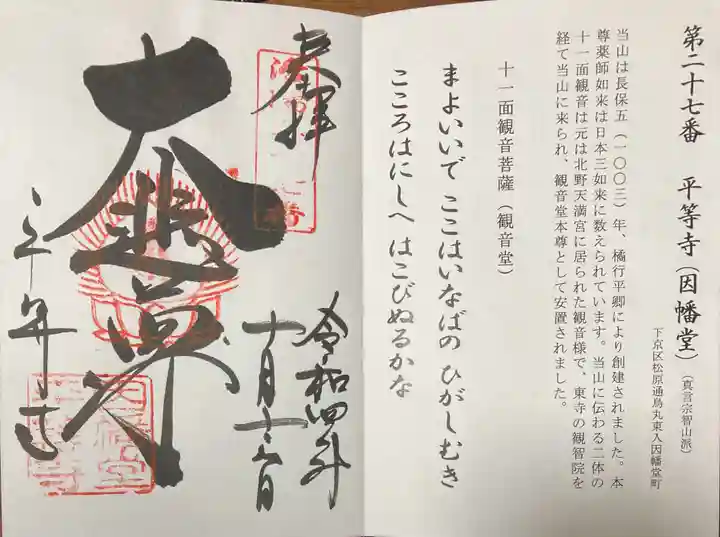 第二十七番　平等寺（因幡堂）（真言宗智山派）
下京区松原通烏丸東入因幡堂町
当山は長保五（一〇〇三）年、橘行平卿により創建されました。本
尊薬師如来は日本三如来に数えられています。当山に伝わる二体の
十一面観音は元は北野天満宮に居られた観音様で、東寺の観智院を
経て当山に来られ、観音堂本尊として安置されました。
十一面観音菩薩（観音堂）
まよいいで ここはいなばの ひがしむき
こころはにしへ はこびぬるかな
奉拝
令和四年
十月十六日
大悲
平等寺